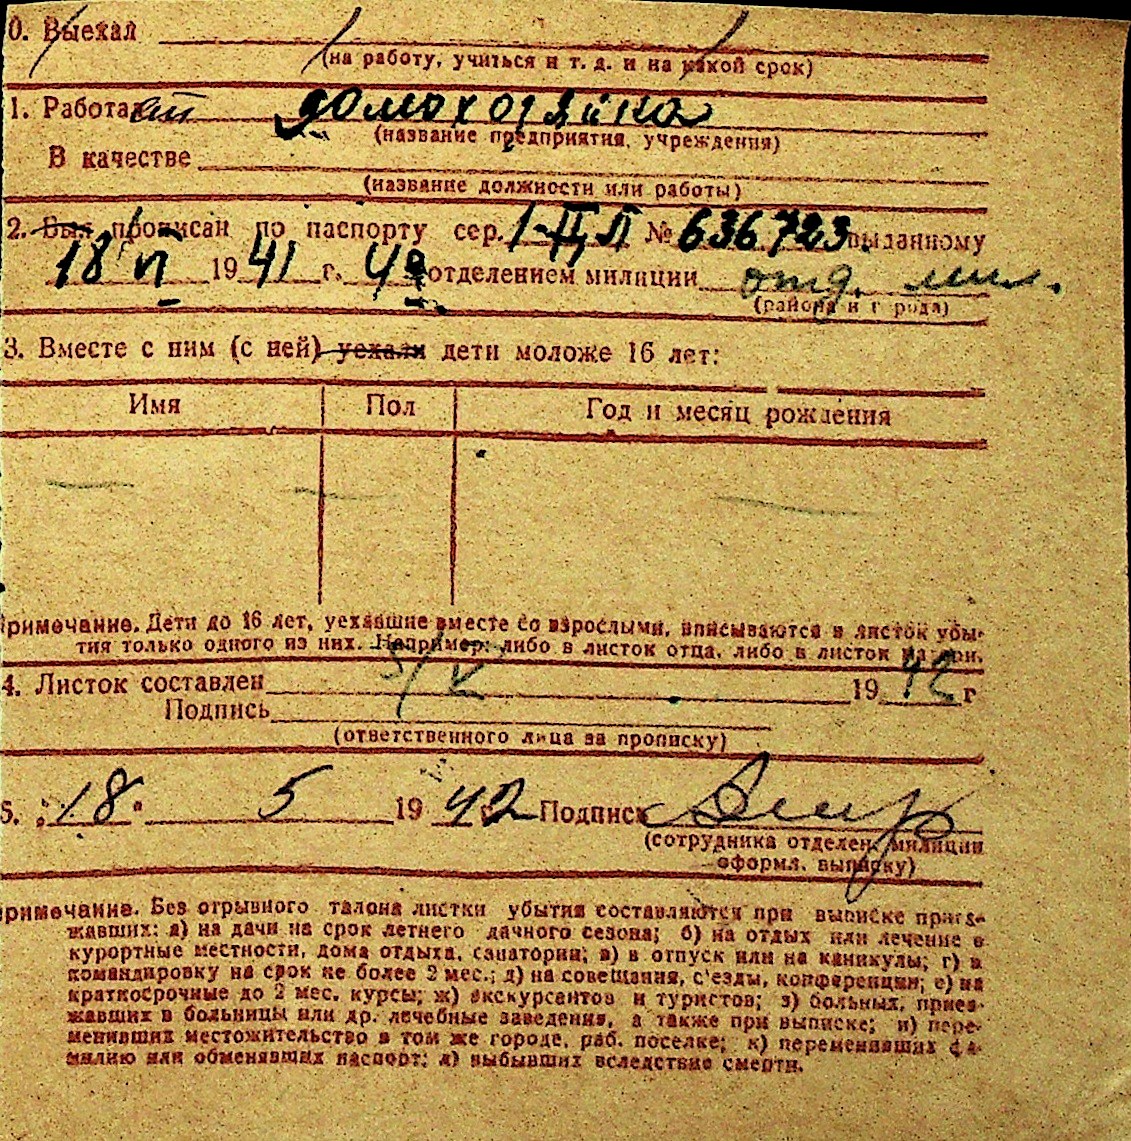 0. Выехал
(на работу, учиться и т. д. и на какой срок)
1. Работает домохозяйка
(название предприятия, учреждения)
В качестве
(название должности или работы)
2. Был прописан по паспорту сер. 1-ЦЛ № 636723 выданному
18 VI 1941 г. 4 отделением милиции отд. мил.
(района и города)
3. Вместе с ним (с ней) уехали дети моложе 16 лет:
Имя Пол Год и месяц рождения
римечание. Дети до 16 лет, уехавшие вместе со взрослыми, вписываются в листок убы-
тия только одного из них. Например: либо в листок отца, либо в листок матери.
4. Листок составлен 5/V 1942 г
Подпись
(ответственного лица за прописку)
5. „18" 5 1942 Подпись
(сотрудника отделен. милиции
оформл. выписку)
римечание. Без отрывного талона листки убытия составляются при выписке приез-
жавших: а) на дачи на срок летнего дачного сезона; б) на отдых или лечение в
курортные местности, дома отдыха, санатории; в) в отпуск или на каникулы; г) в
командировку на срок не более 2 мес.; д) на совещания, с'езды, конференции; е) на
краткосрочные до 2 мес. курсы; ж) экскурсантов и туристов; з) больных, приез-
жавших в больницы или др. лечебные заведения, а также при выписке; и) пере-
менивших местожительство в том же городе, раб. поселке; к) переменивших фа-
милию или обменявших паспорт; л) выбывших вследствие смерти.